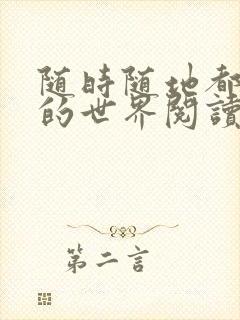 随時随地都
的世界閱讀
第二言